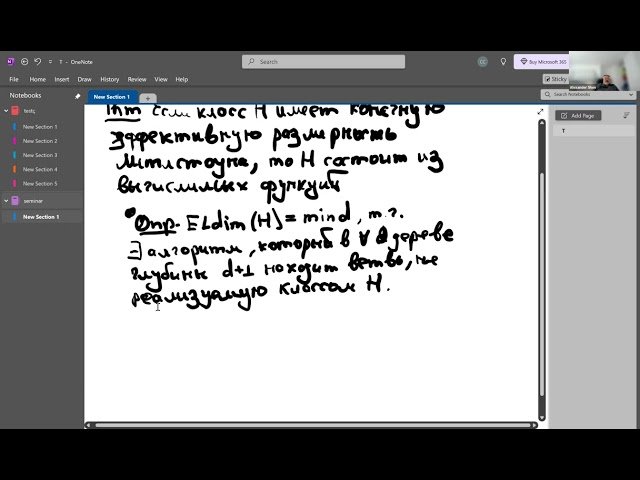 T - OneNote
Search
CC
Buy Microsoft 365
File Home Insert Draw View Help
Sticky
Alexander Shen
Notebooks
New Section 1 +
Search Notebooks
testç
New Section 1
New Section 2
New Section 3
New Section 4
New Section 5
seminar
New Section 1
Add Page
T
Thm если класс H имеет конечную
эффективную размерность
Литлстоуна, то H состоит из
вычислимых функций
Опр. ELdim (H) = min d, т.ч.
∃ алгоритм, который в ∀ дереве
глубины d+1 находит ветвь, не
реализуемую классом H.